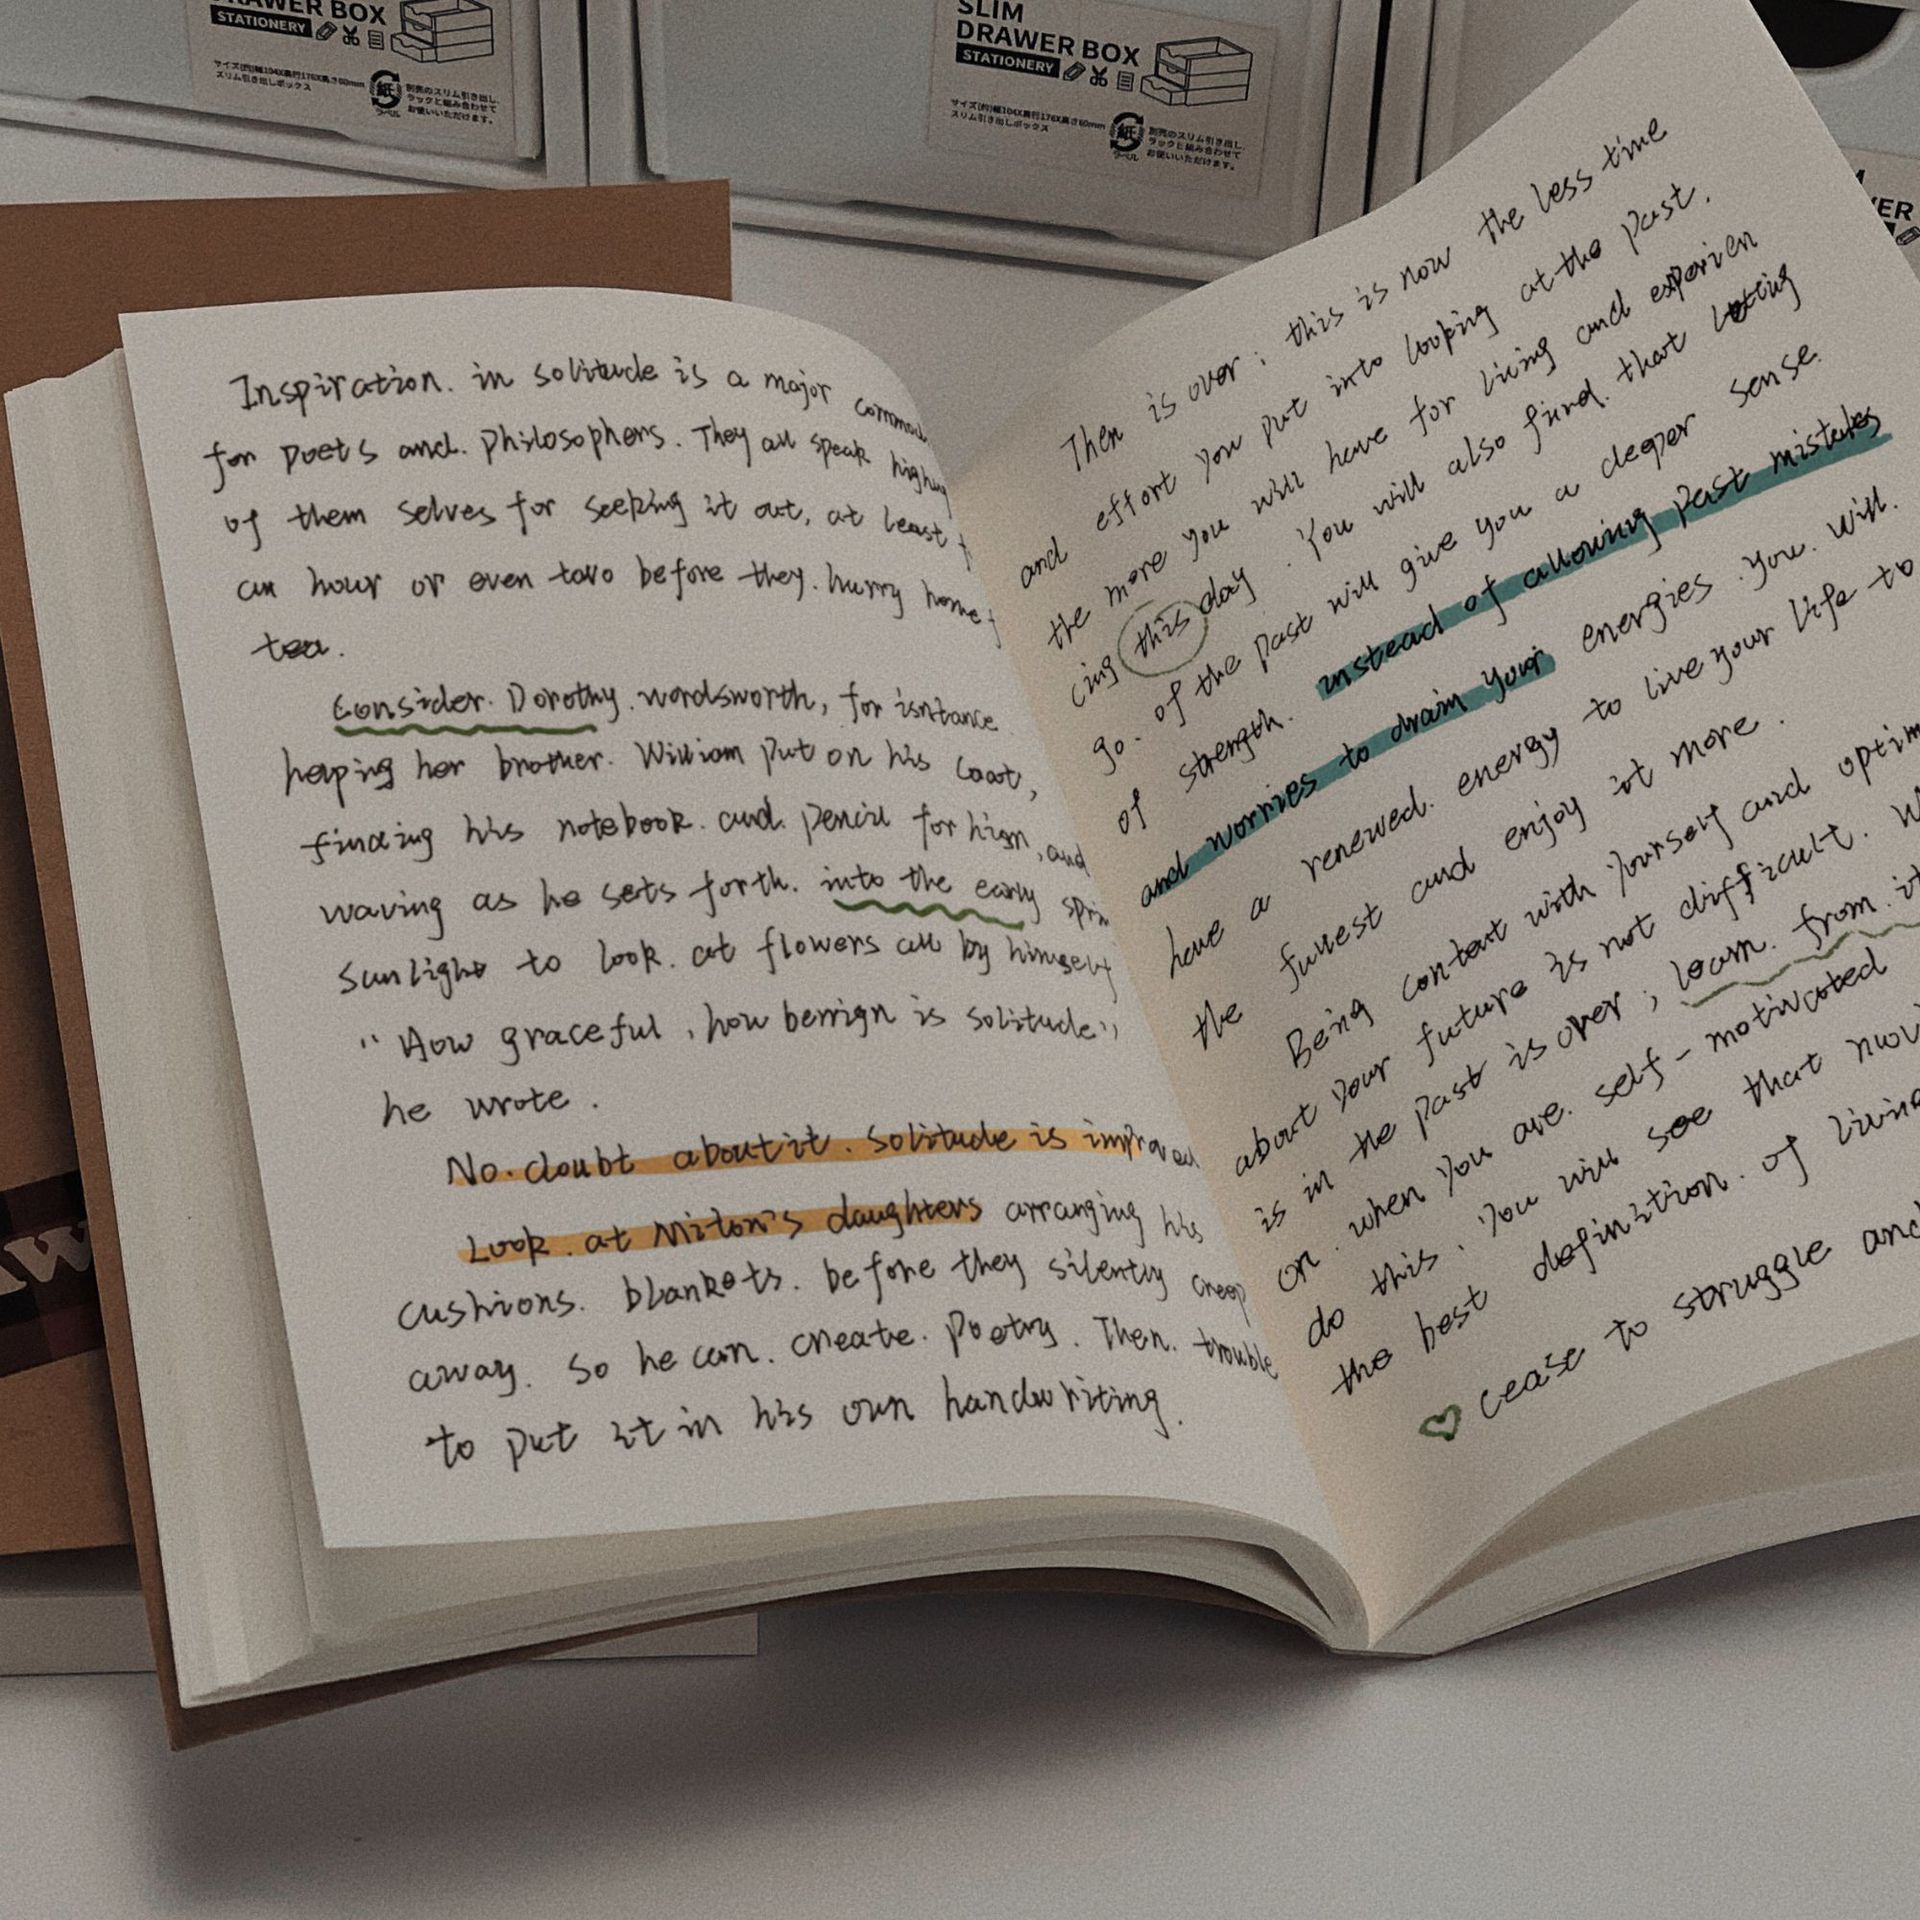 DRAWER BOX
STATIONERY
サイズ(約)幅104X奥行176X高さ60mm
スリム引き出しボックス
紙
ラベル
別売のスリム引き出し
ラックと組み合わせて
お使いいただけます。
SLIM
DRAWER BOX
STATIONERY
サイズ(約)幅104X奥行176X高さ60mm
スリム引き出しボックス
紙
ラベル
別売のスリム引き出し
ラックと組み合わせて
お使いいただけます。
Inspiration. in solitude is a major commod
for poets and. philosophers. They all speak highly
of them selves for seeking it out, at least
an hour or even two before they. hurry home f
tea.
Consider. Dorothy. wordsworth, for isntance
heping her brother. William put on his coat,
finding his notebook. and. pencil for him, and
waving as he sets forth. into the early sprin
sunlight to look. at flowers all by himself
"How graceful, how benign is solitude"
he wrote.
No. doubt about it. solitude is improved
Look. at Milton's daughters arranging his
cushions. blankets. before they silently creep
away. so he can. create. poetry. Then. trouble
to put it in his own handwriting.
Then is over; this is now the less time
and effort you put into looking at the past.
the more you will have for living and experien
cing this day. You will also find. that letting
go. of the past will give you a deeper sense
of strength. instead of allowing past mistakes
and worries to drain your energies. you. will.
have a renewed. energy to live your life to
the fullest and enjoy it more.
Being content with yourself and optim
about your future is not difficult. W
is in the past is over; learn. from. it
on. when you are. self-motivated
do this. you will see that
the best defginition. of living
cease to struggle and